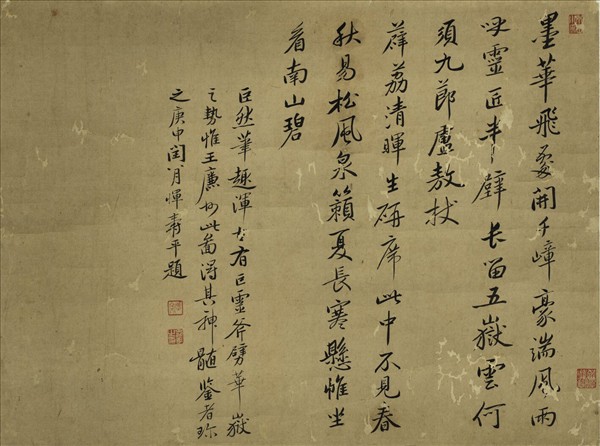 墨華飛處開千嶂豪端風雨
呼靈匠半壁長留五嶽雲何
須九節盧敖杖
薜荔清暉生研席此中不見春
秋易松風泉籟夏長寒懸帷坐
看南山碧
巨然筆趣渾古有巨靈斧劈華嶽
之勢惟王廉州此啚得其神髓鑒者珍
之庚申閏八月惲壽平題